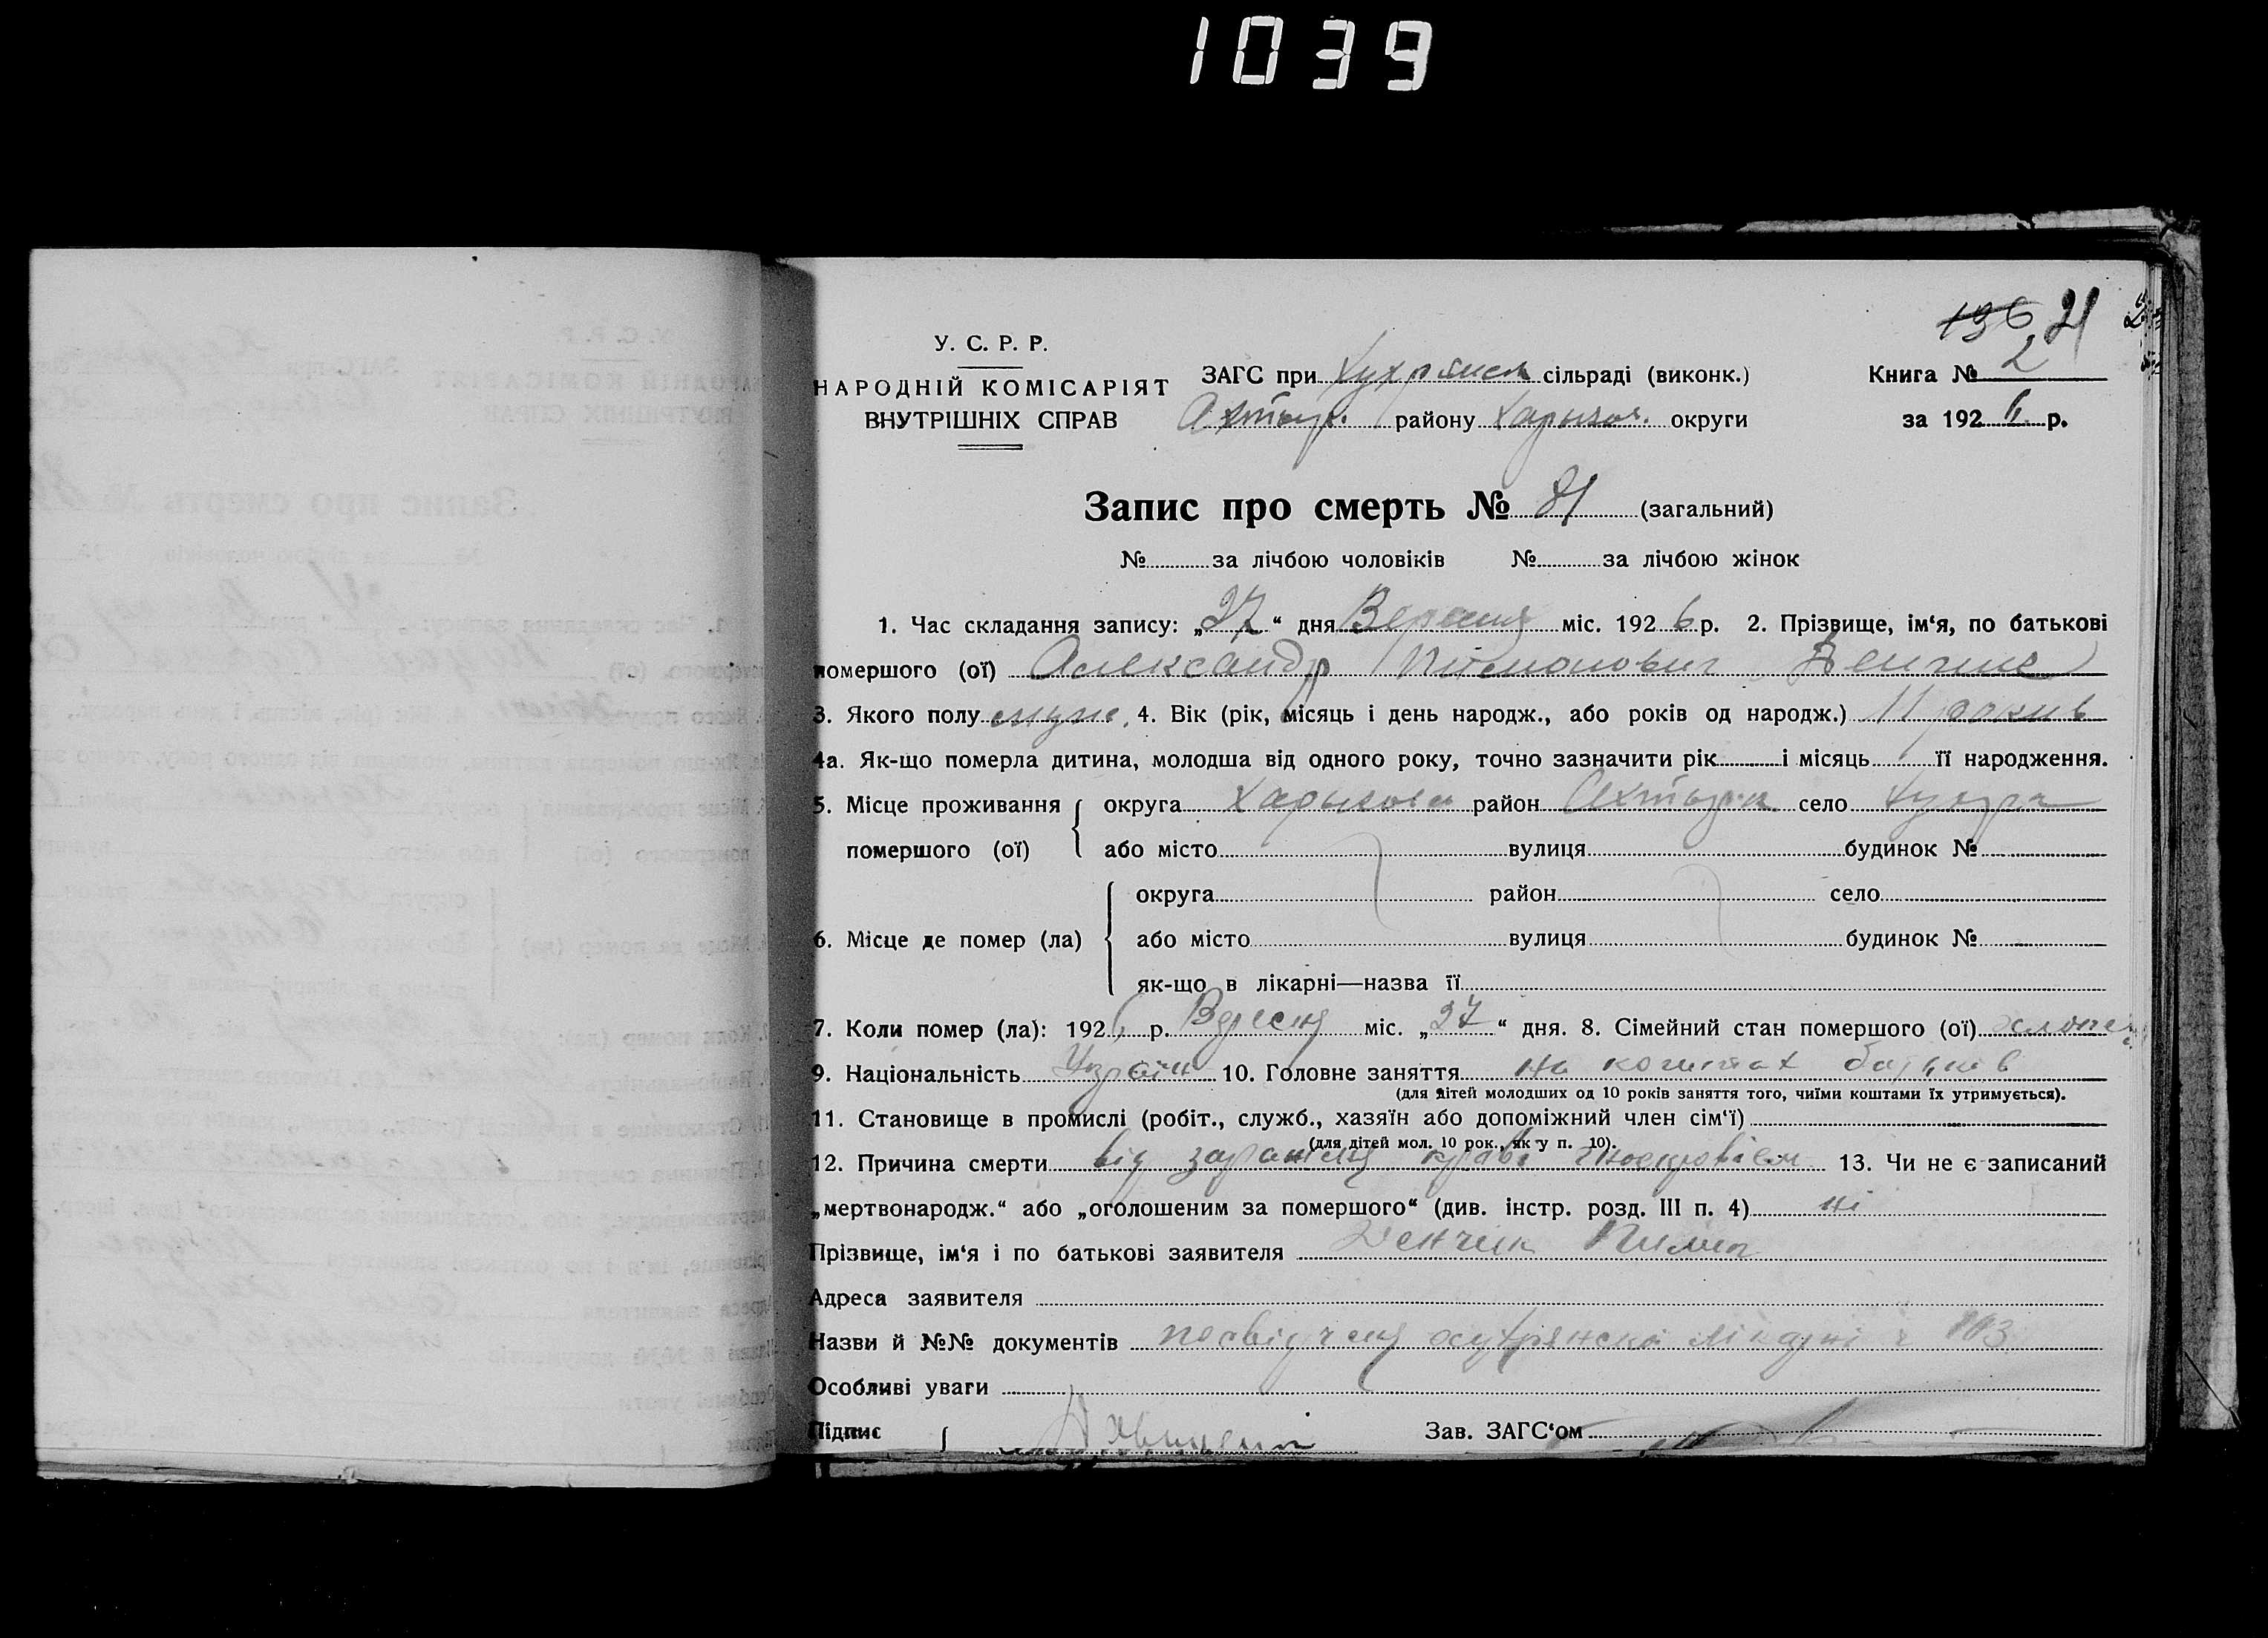 1039
136 21
У. С. Р. Р.
НАРОДНІЙ КОМІСАРІЯТ
ВНУТРІШНІХ СПРАВ
ЗАГС при Хухрянск сільраді (виконк.)
Охтыр. району Харьков. округи
Книга № 2
за 1926 р.
Запис про смерть № 81 (загальний)
№ за лічбою чоловіків № за лічбою жінок
1. Час складання запису: „27“ дня Вересня міс. 1926 р. 2. Прізвище, ім‘я, по батькові
помершого (ої) Александр Пилипович
3. Якого полу муж. 4. Вік (рік, місяць і день народж., або років од народж.) 11 років
4а. Як-що померла дитина, молодша від одного року, точно зазначити рік і місяць її народження.
5. Місце проживання помершого (ої) округа Харькова район Охтырка село Хухра
або місто вулиця будинок №
6. Місце де помер (ла) округа район село
або місто вулиця будинок №
як-що в лікарні—назва її
7. Коли помер (ла): 1926 р. Вересня міс. „27“ дня. 8. Сімейний стан помершого (ої) хлопець
9. Національність Україн 10. Головне заняття на коштах батьків
(для дітей молодших од 10 років заняття того, чиїми коштами їх утримується).
11. Становище в промислі (робіт., служб., хазяїн або допоміжний член сім‘ї)
(для дітей мол. 10 рок., як у п. 10).
12. Причина смерти від зараженя крові 13. Чи не є записаний
„мертвонародж.“ або „оголошеним за помершого“ (див. інстр. розд. III п. 4) ні
Прізвище, ім‘я і по батькові заявителя Денчик Пилип
Адреса заявителя
Назви й №№ документів посвідченя хухрянскої лікарні ч 103
Особливі уваги
Підпис Зав. ЗАГС‘ом